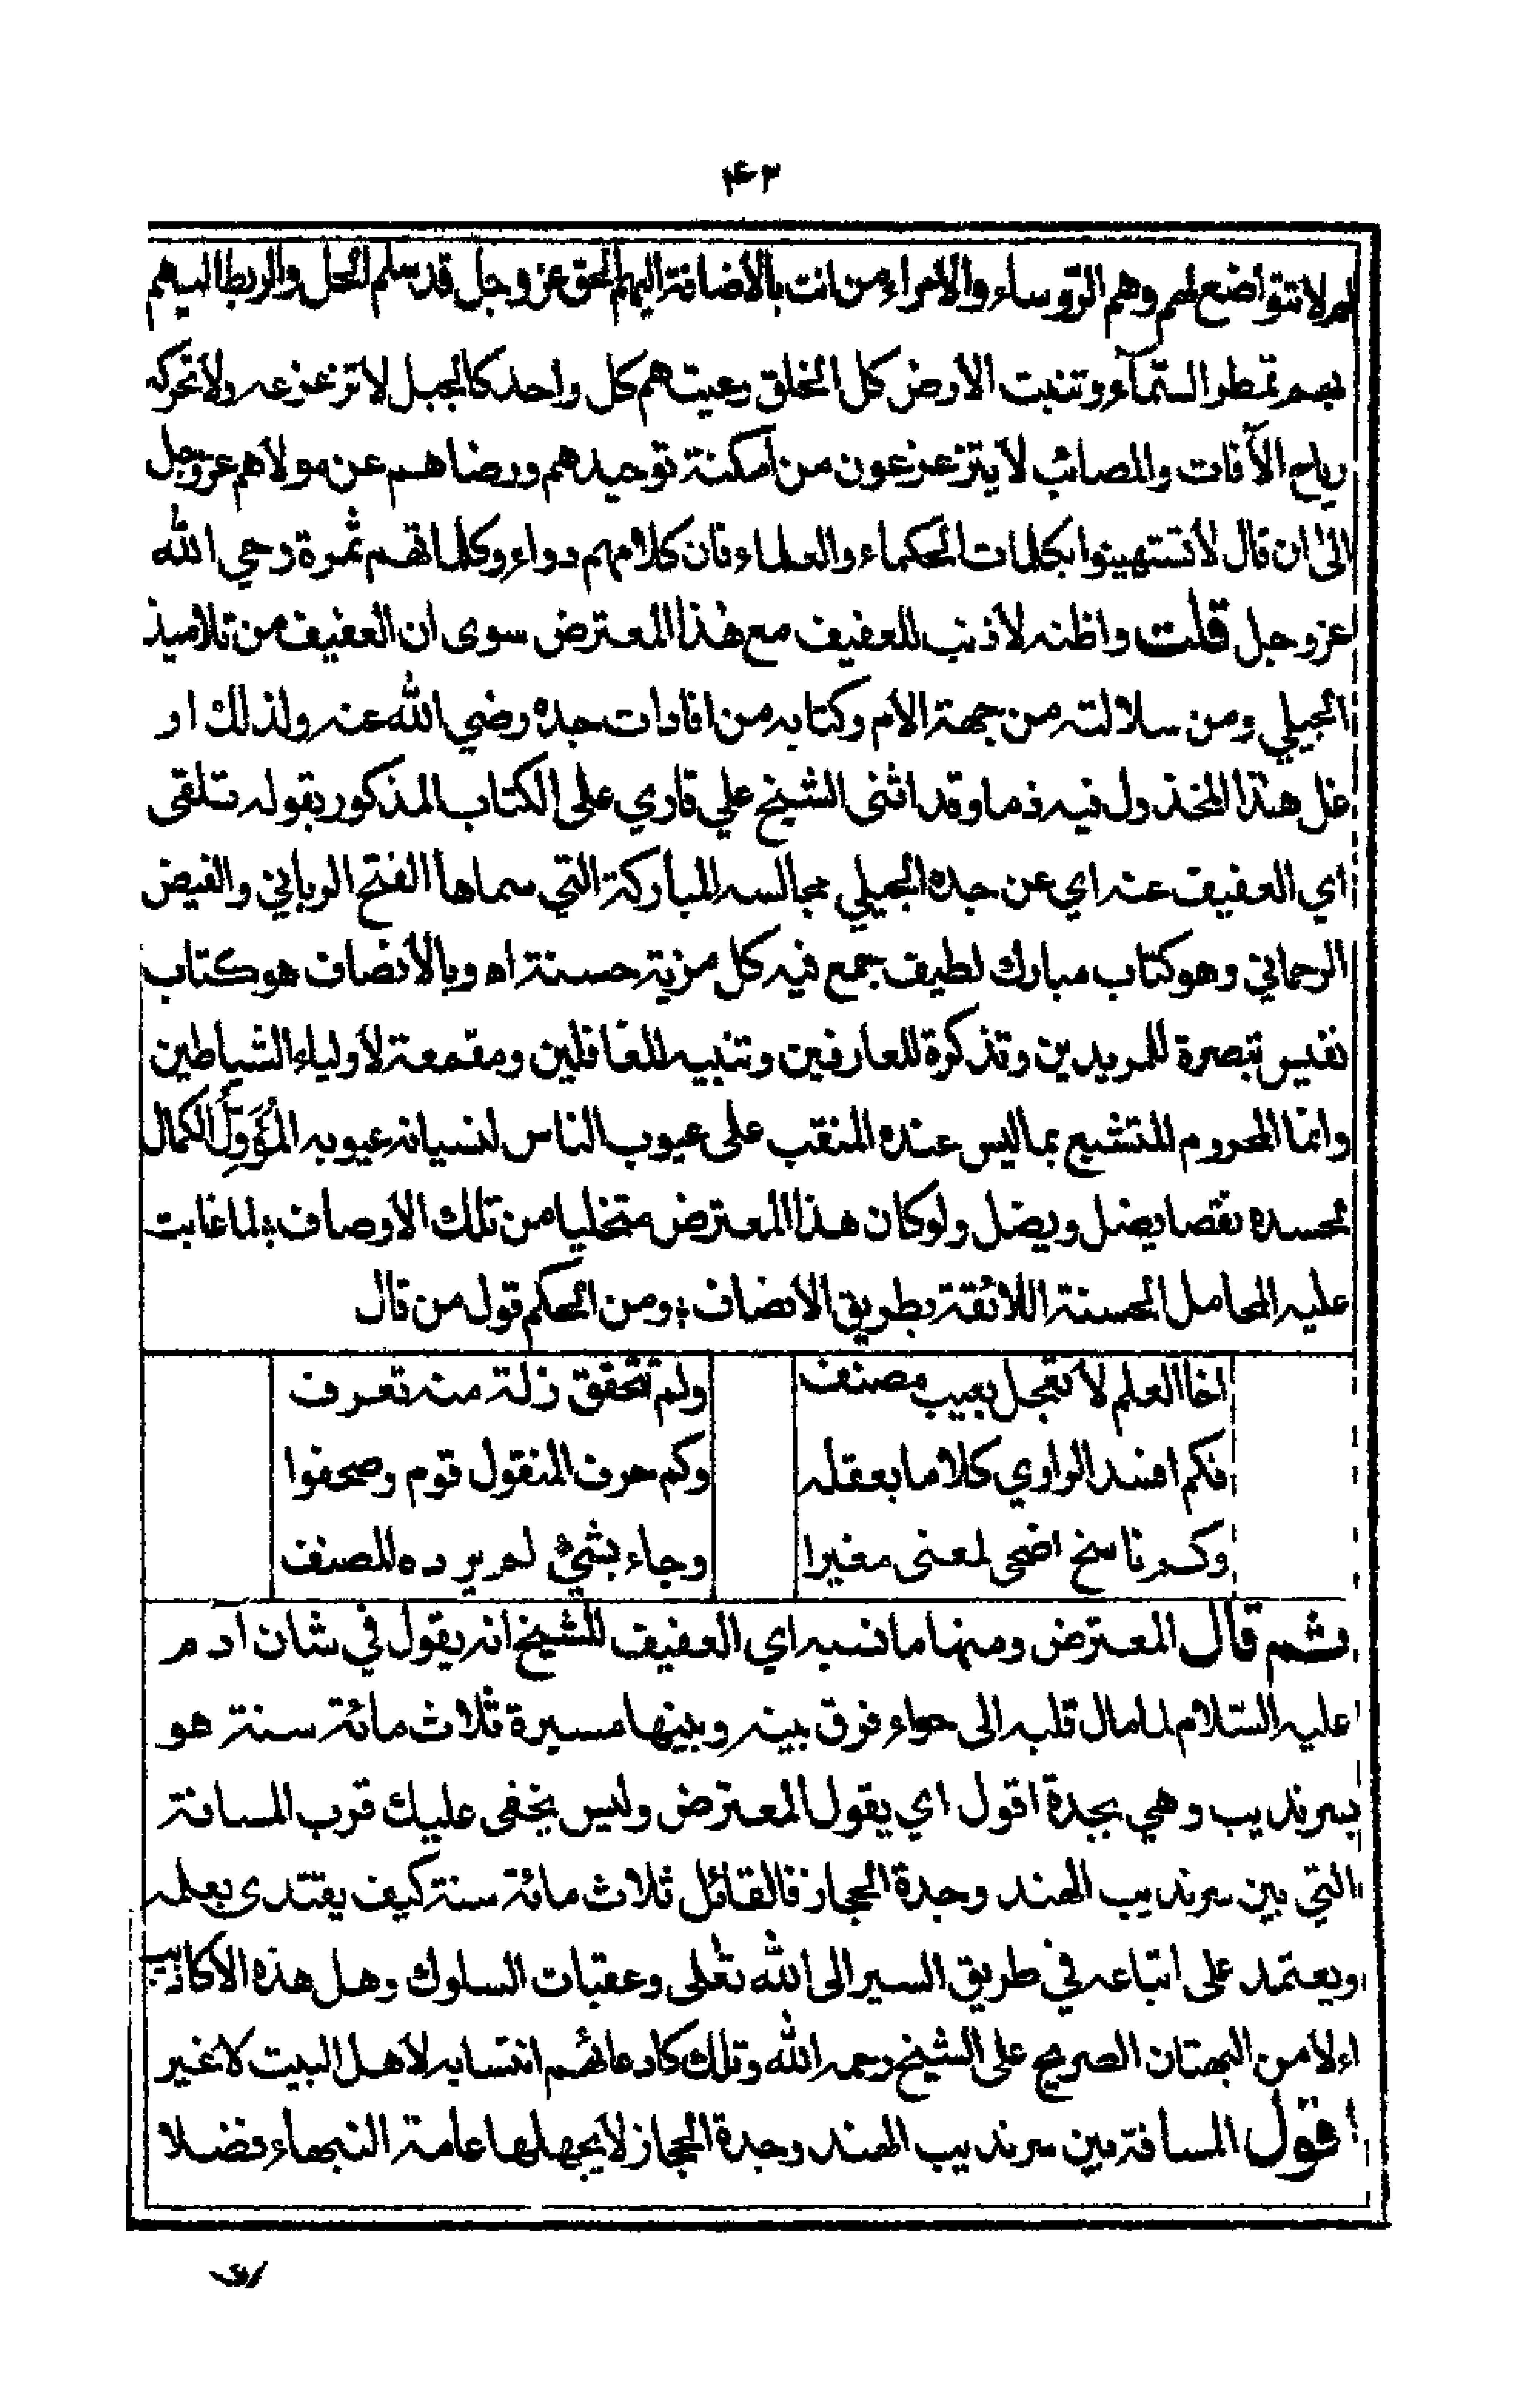 ۴۳
لم لا تتواضع لهم وهم الرّوساء والامراء من انت بالاضافة اليهم الحق عز وجل قد سلم الحل والربط اليهم
بهم تمطر السّمآء وتنبت الارض كل الخلق رعيتهم كل واحد كالجبل لا تزعزعه ولا تحركه
رياح الآفات والمصائب لا يتزعزعون من أمكنة توحيدهم ورضاهم عن مولاهم عز وجل
الىٰ ان قال لا تستهينوا بكلمات الحكماء والعلماء فان كلامهم دواء وكلماتهم ثمرة وحي الله
عز وجل قلت واظنه لا ذنب للعفيف مع هٰذا المعترض سوى ان العفيف من تلاميذ
الجيلي ومن سلالته من جهة الام وكتابه من افادات جده رضي الله عنه ولذلك او
غل هذا المخذول فيه ذما وقد اثنى الشيخ علي قاري على الكتاب المذكور بقوله تلقى
اي العفيف عنه اي عن جده الجيلي مجالسه المباركة التي سماها الفتح الرباني والفيض
الرحماني وهو كتاب مبارك لطيف جمع فيه كل مزية حسنة اه وبالانصاف هو كتاب
نفيس تبصرة للمريدين وتذكرة للعارفين وتنبيه للغافلين ومقمعة لاولياء الشياطين
وانما المحروم المتشبع بما ليس عنده المنقب على عيوب الناس لنسيانه عيوبه المُؤَوِّلُ الكمال
بحسده نقصا يضل ويضل ولو كان هذا المعترض متخليا من تلك الاوصاف ؛ لما غابت
عليه المحامل الحسنة اللائقة بطريق الانصاف ؛ ومن الحكم قول من قال
اخا العلم لا تعجل بعيب مصنف ولم تتحقق زلة منه تعرف
فكم افسد الراوي كلاما بعقله وكم حرف المنقول قوم وصحفوا
وكم ناسخ اضحى لمعنى مغيرا وجاء بشيءٍ لم يرده المصنف
ثم قال المعترض ومنها ما نسبه اي العفيف للشيخ انه يقول في شان آدم
عليه السّلام لما مال قلبه الى حواء فرق بينه وبينها مسيرة ثلاث مائة سنة هو
بسرنديب وهي بجدة اقول اي يقول المعترض وليس يخفى عليك قرب المسافة
التي بين سرنديب الهند وجدة الحجاز فالقائل ثلاث مائة سنة كيف يقتدى بعلمه
ويعتمد على اتباعه في طريق السير الى الله تعٰلى وعقبات السلوك وهل هذه الاكاذيب
اولا من البهتان الصريح على الشيخ رحمه الله وتلك كادعائهم انتسابه لاهل البيت لا غير
اقول المسافة بين سرنديب الهند وجدة الحجاز لا يجهلها عامة النبهاء فضلا